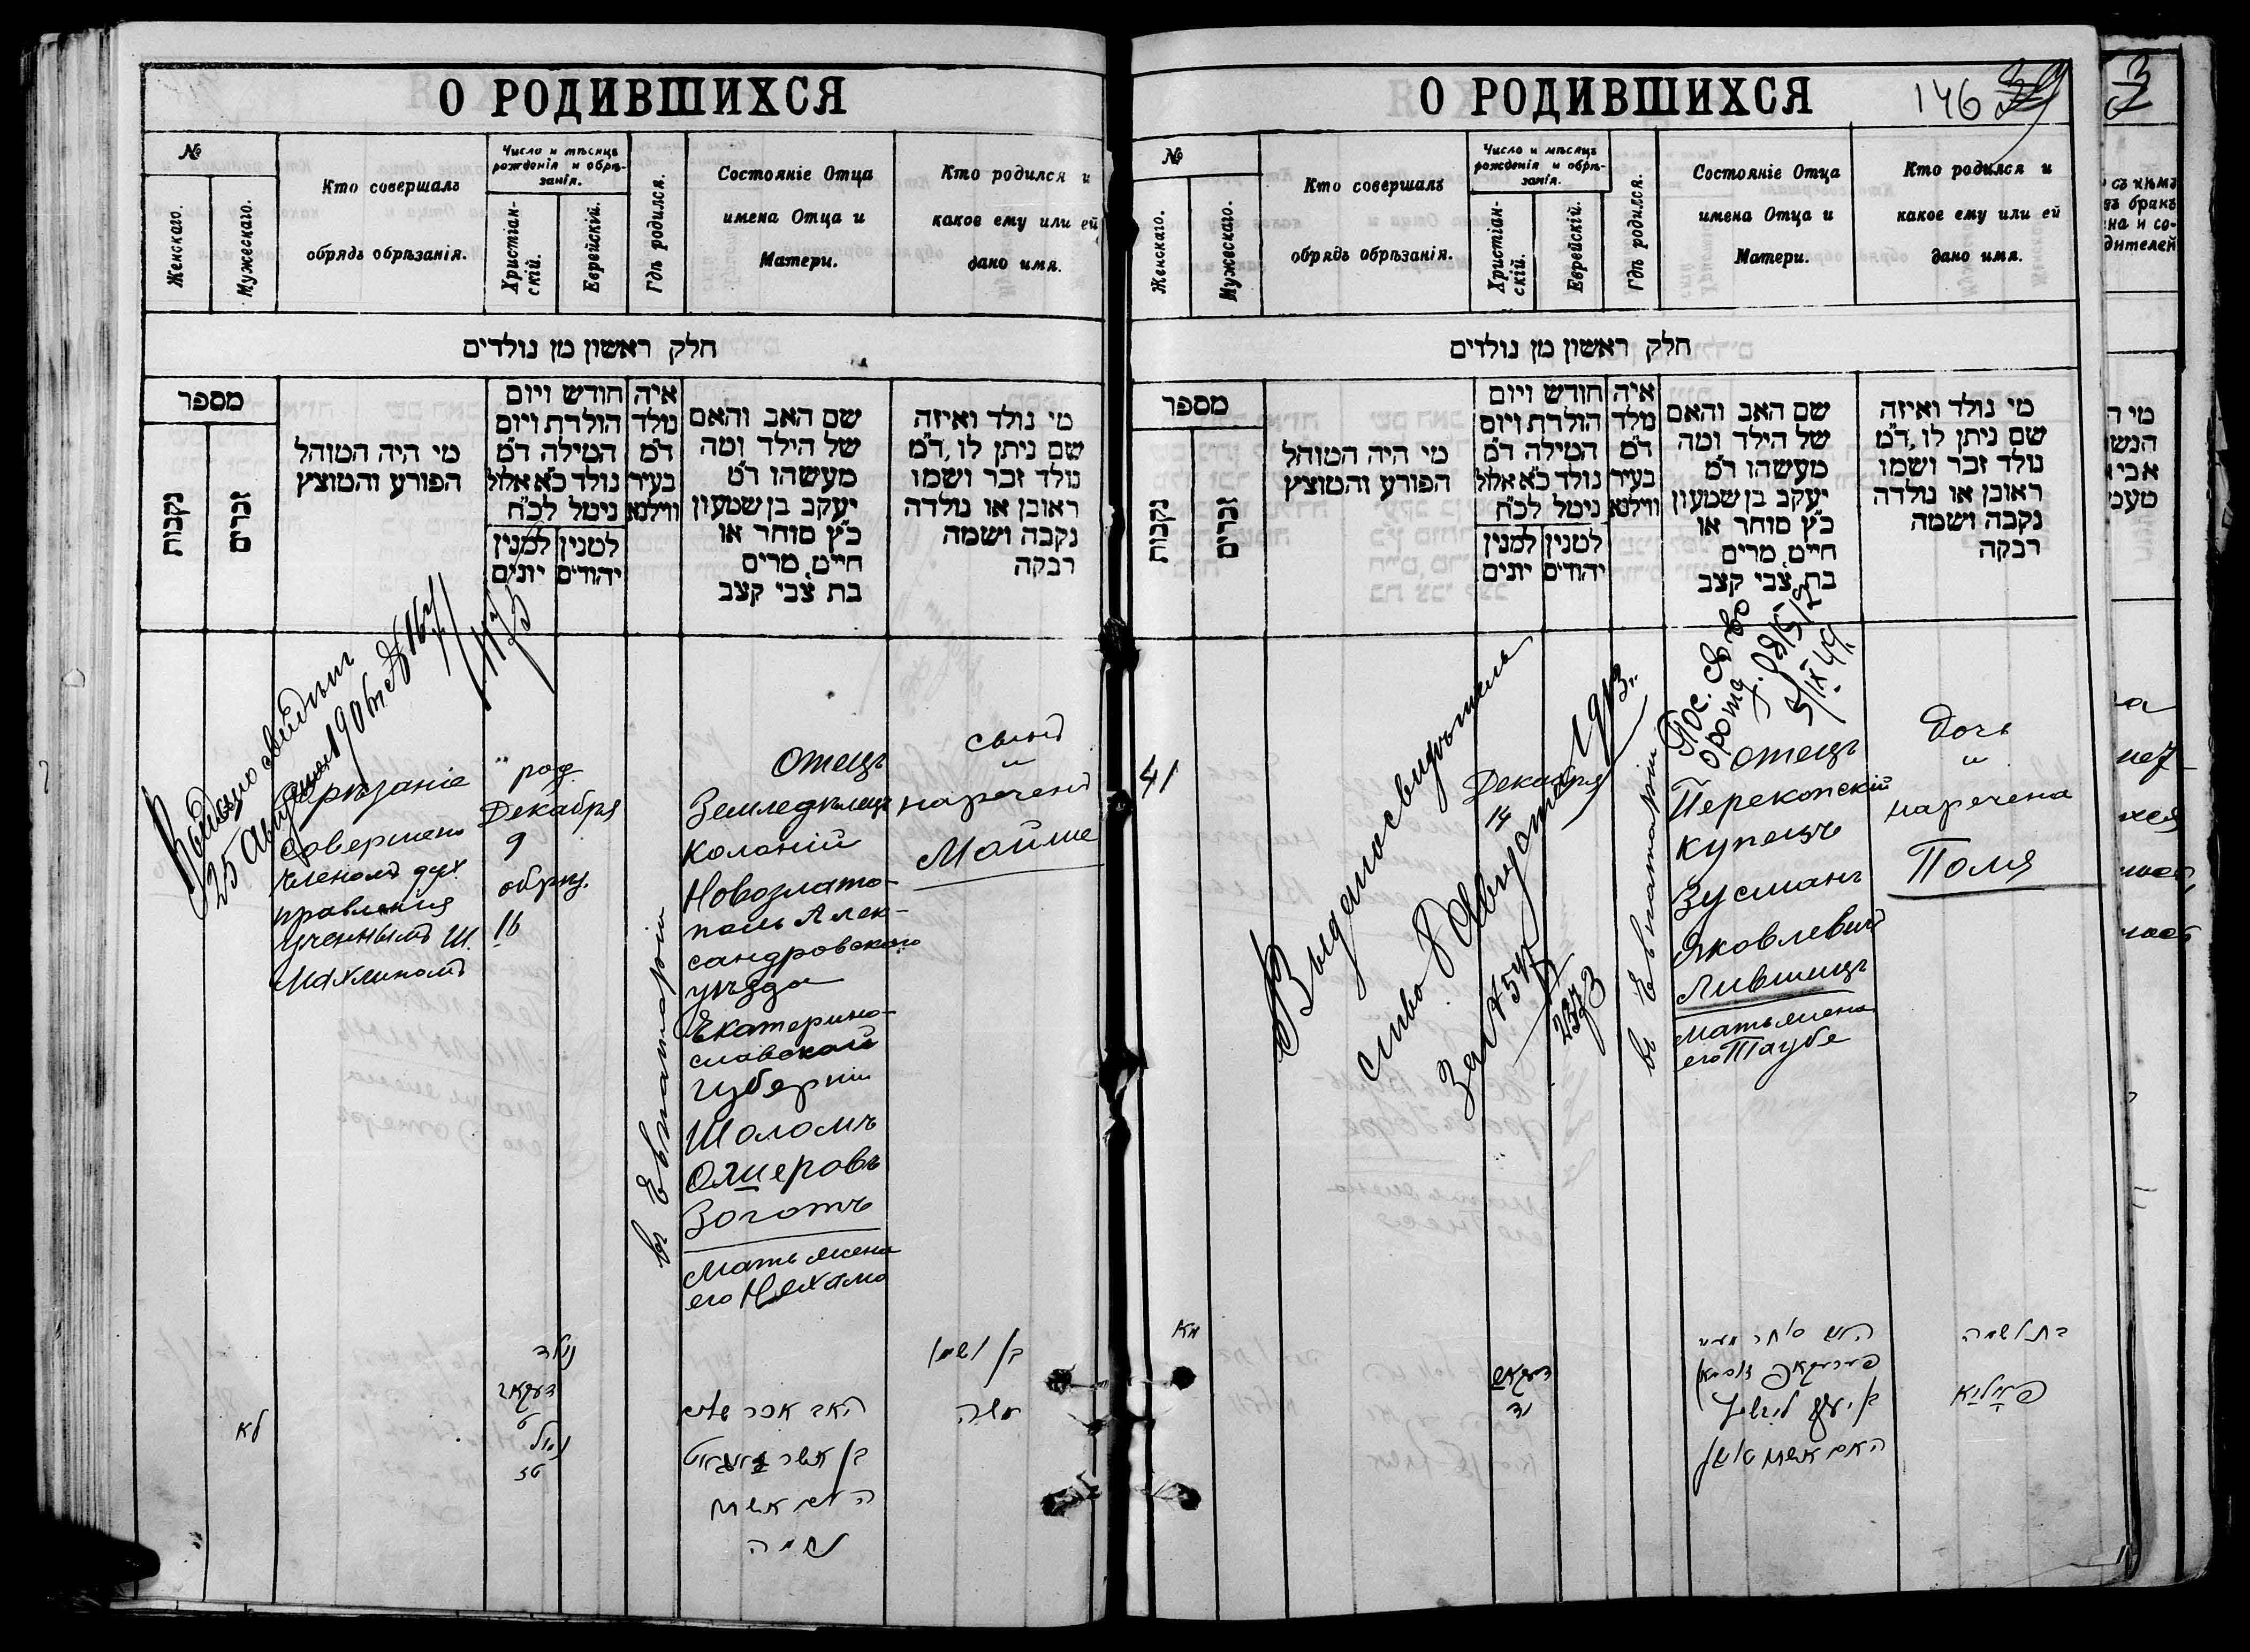 О РОДИВШИХСЯ
№
Женскаго.
Мужескаго.
Кто совершалъ
обрядъ обрѣзанія.
Число и мѣсяцъ
рожденія и обрѣ-
занія.
Христіан-
скій.
Еврейскій.
Гдѣ родился.
Состояніе Отца
имена Отца и
Матери.
Кто родился и
какое ему или ей
дано имя.
חלק ראשון מן נולדים
מספר
נקבות
זכרים
מי היה המוהל
הפורע והמוצץ
חודש ויום
הולדת ויום
המילה ד"מ
נולד כ"א אלול
נימל לכ"ח
למנין למנין
יהודים יונים
איה
נולד
ד"מ
בעיר
ווילנא
שם האב והאם
של הילד ומה
מעשהו ד"מ
יעקב בן שמעון
כ"ץ סוחר או
חייט, מרים
בת צבי קצב
מי נולד ואיזה
שם ניתן לו, ד"מ
נולד זכר ושמו
ראובן או נולדה
נקבה ושמה
רבקה
25 Августа 1906 г. № 167
Обрѣзаніе
совершено
членомъ дух.
правленія
ученымъ Ш.
Махлиномъ
род.
Декабря
9
обрѣз.
16
въ Евпаторіи
Отецъ
Земледѣлецъ
Колоніи
Новозлато-
поль Алек-
сандровскаго
уѣзда
Екатерино-
славской
Губерніи
Шоломъ
Ошеровъ
Зоготъ
мать жена
его Нехама
сынъ
и
нареченъ
Мойше
לא
נולד
דעקאב
ט
נימול
טז
האב אכר שלום
בן אשר
האם אשתו
נחמה
בן ושמו
משה
О РОДИВШИХСЯ
146 39
№
Женскаго.
Мужескаго.
Кто совершалъ
обрядъ обрѣзанія.
Число и мѣсяцъ
рожденія и обрѣ-
занія.
Христіан-
скій.
Еврейскій.
Гдѣ родился.
Состояніе Отца
имена Отца и
Матери.
Кто родился и
какое ему или ей
дано имя.
חלק ראשון מן נולדים
מספר
נקבות
זכרים
מי היה המוהל
הפורע והמוצץ
חודש ויום
הולדת ויום
המילה ד"מ
נולד כ"א אלול
נימל לכ"ח
למנין למנין
יהודים יונים
איה
נולד
ד"מ
בעיר
ווילנא
שם האב והאם
של הילד ומה
מעשהו ד"מ
יעקב בן שמעון
כ"ץ סוחר או
חייט, מרים
בת צבי קצב
מי נולד ואיזה
שם ניתן לו, ד"מ
נולד זכר ושמו
ראובן או נולדה
נקבה ושמה
רבקה
41
Выдано свидѣтель
ство 8 Августа 1913 г.
за № 547
Декабря
14
въ Евпаторіи
отецъ
Перекопскій
купецъ
Зусманъ
Яковлевичъ
Лившицъ
мать жена
его Таубе
Дочь
и
наречена
Поля
מא
דעקאב
יד
בן יעקב ליפשיץ
האם אשתו טויבע
בת ושמה
פוליא